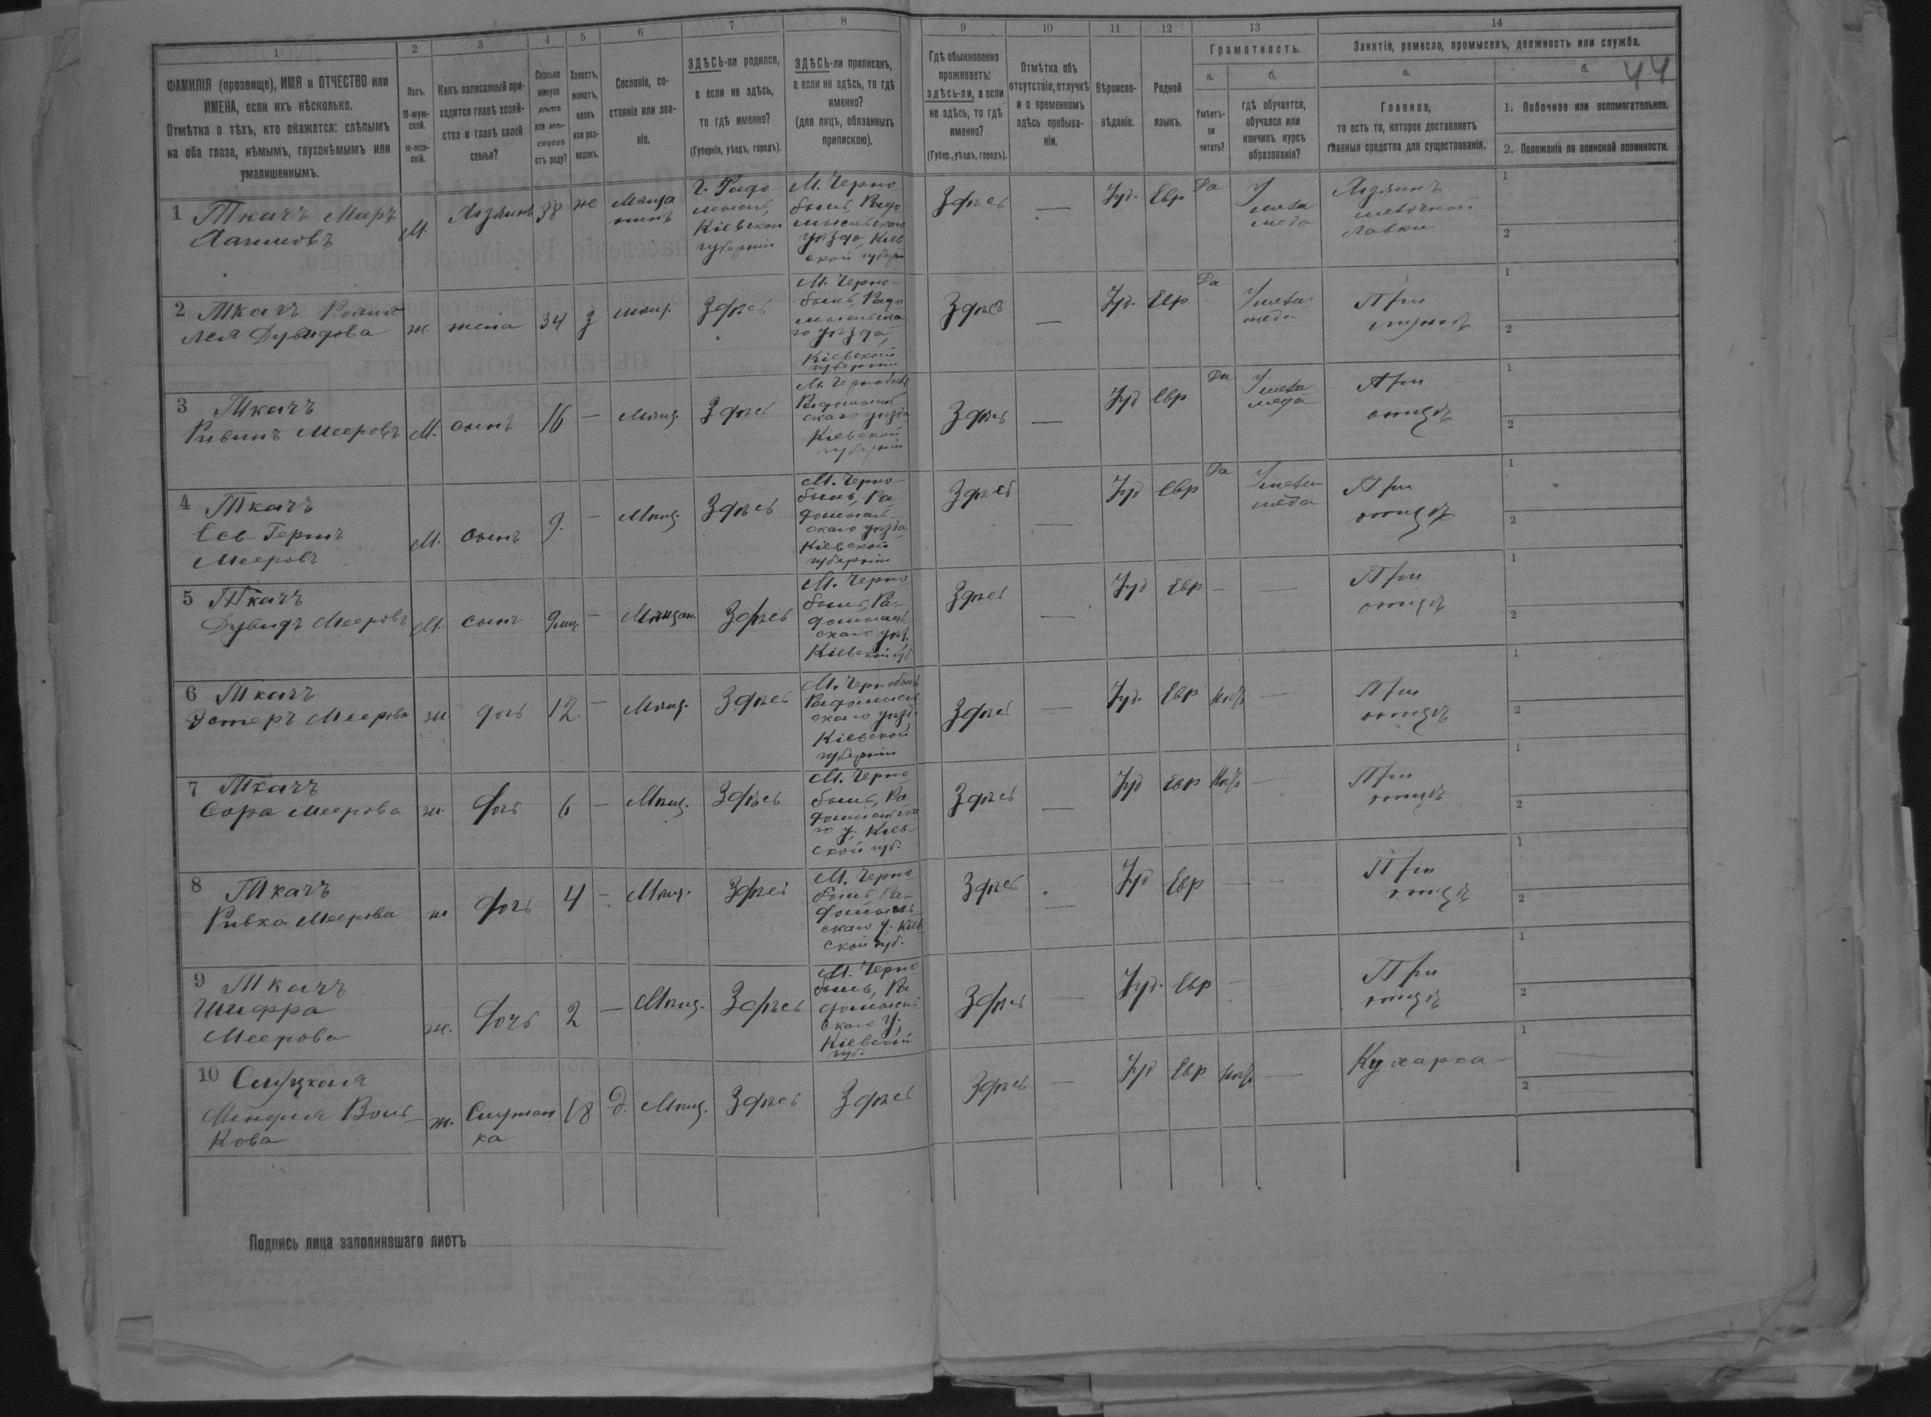 1
2
3
4
5
6
7
8
9
10
11
12
13
14
44
ФАМИЛІЯ (прозвище), ИМЯ и ОТЧЕСТВО или
ИМЕНА, если ихъ нѣсколько.
Отмѣтка о тѣхъ, кто окажется: слѣпымъ
на оба глаза, нѣмымъ, глухонѣмымъ или
умалишеннымъ.
Полъ.
М-муж-
ской.
Ж-жен-
скій.
Какъ записанный при-
ходится главѣ хозяй-
ства и главѣ своей
семьи?
Сколько
минуло
лѣтъ
или мѣ-
сяцевъ
отъ роду?
Холостъ,
женатъ,
вдовъ
или раз-
веденъ.
Сословіе, со-
стояніе или зва-
ніе.
ЗДѢСЬ-ли родился,
а если не здѣсь,
то гдѣ именно?
(Губернія, уѣздъ, городъ).
ЗДѢСЬ-ли приписанъ,
а если не здѣсь, то гдѣ
именно?
(для лицъ, обязанныхъ
припискою).
Гдѣ обыкновенно
проживаетъ:
здѣсь-ли, а если
не здѣсь, то гдѣ
именно?
(Губер., уѣздъ, городъ).
Отмѣтка объ
отсутствіи, отлучкѣ
и о временномъ
здѣсь пребыва-
ніи.
Вѣроиспо-
вѣданіе.
Родной
языкъ.
Грамотность.
а.
Умѣетъ-
ли
читать?
б.
гдѣ обучается,
обучался или
кончилъ курсъ
образованія?
Занятіе, ремесло, промыселъ, должность или служба.
а.
Главное,
то есть то, которое доставляетъ
главныя средства для существованія.
б.
1. Побочное или вспомогательное.
2. Положеніе по воинской повинности.
1 Ткачъ
М.
Хозяинъ
38
ж
Мѣща
нинъ
г. Радо
мысль,
Кіевской
губерніи
М. Черно
быль, Радо
мысльскаго
уѣзда, Кіев
ской губерн
Здѣсь
—
Іуд.
Евр
Да
У
мела
меда
Хозяинъ
лавки
1
2
2 Ткачъ
Лея Дувидова
ж.
жена
34
з
Мѣщ.
Здѣсь
М. Черно-
быль, Радо
мысльска
го уѣзда,
Кіевской
губерніи
Здѣсь
—
Іуд.
Евр
Да
У мела
меда
При
мужѣ
1
2
3 Ткачъ
Рувинъ Мееровъ
М.
сынъ
16
—
Мѣщ.
Здѣсь
М. Чернобыль
Радомысль
скаго уѣзда
Кіевской
губерніи
Здѣсь
—
Іуд
Евр
Да
У мела
меда
При
отцѣ
1
2
4 Ткачъ
Мееровъ
М.
сынъ
9.
—
Мѣщ.
Здѣсь
М. Черно-
быль, Ра-
домысль-
скаго уѣзда
Кіевской
губерніи
Здѣсь
—
Іуд
Евр
Да
У мела
меда
При
отцѣ
1
2
5 Ткачъ
Дувидъ Мееровъ
М.
сынъ
—
Мѣщан.
Здѣсь
М. Черно
быль, Ра-
домысль
скаго уѣз.
Кіевской губ
Здѣсь
—
Іуд
Евр
—
—
При
отцѣ
1
2
6 Ткачъ
Эстеръ Меерова
ж.
дочь
12.
—
Мѣщ.
Здѣсь
М. Чернобыль
Радомысль
скаго уѣзд.
Кіевской
губерніи
Здѣсь
—
Іуд.
Евр
Нѣтъ
—
При
отцѣ
1
2
7 Ткачъ
Сора Меерова
ж.
дочь
6
—
Мѣщ.
Здѣсь
М. Черно
быль, Ра
домысльска
го у. Кіев-
ской губ.
Здѣсь
—
Іуд
Евр
Нѣтъ
—
При
отцѣ
1
2
8 Ткачъ
Ривка Меерова
ж
дочь
4
—
Мѣщ.
Здѣсь
М. Черно
быль, Ра-
домысль
скаго у. Кіев
ской губ.
Здѣсь
—
Іуд
Евр
—
—
При
отцѣ
1
2
9 Ткачъ
Шифра
Меерова
ж.
дочь
2
—
Мѣщ.
Здѣсь
М. Черно
быль, Ра
домысль
скаго у,
Кіевской
губ.
Здѣсь
—
Іуд.
Евр
—
При
отцѣ
1
2
10 Слуцкая
Воль-
кова
ж.
Служан
ка
18
д.
Мѣщ.
Здѣсь
Здѣсь
Здѣсь
—
Іуд
Евр
Нѣтъ
—
Кухарка
1
2
Подпись лица заполнявшаго листъ